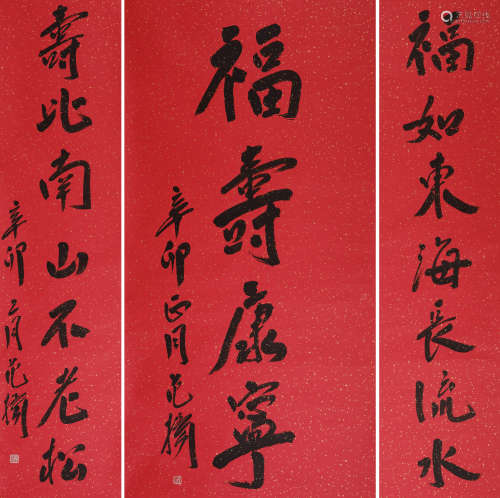 福如東海長流水
福壽康寧
辛卯正月范揚
壽比南山不老松
辛卯正月范揚